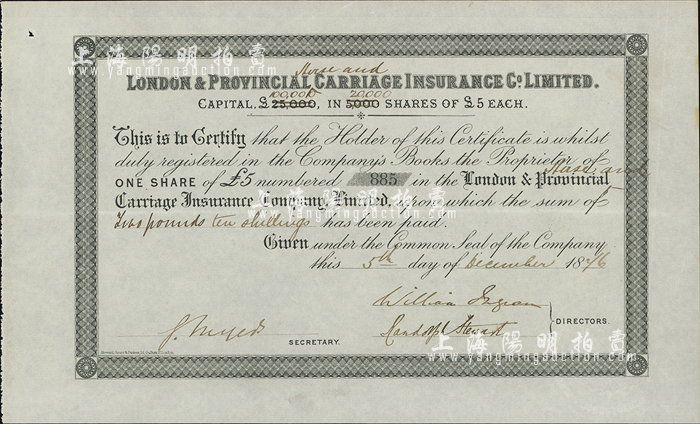 上海陽明拍賣
www.yangmingauction.com
Horse and
LONDON & PROVINCIAL CARRIAGE INSURANCE Co. LIMITED.
100,000 20,000
CAPITAL, £25,000, IN 5000 SHARES OF £5 EACH.
This is to Certify that the Holder of this Certificate is whilst
duly registered in the Company's Books the Proprietor of
Horse and
ONE SHARE of £5 numbered 885 in the London & Provincial
Carriage Insurance Company, Limited, upon which the sum of
Two pounds ten shillings has been paid.
Given under the Common Seal of the Company
this 5th day of December 1876
William Ingram
Randolph Stewart
DIRECTORS.
SECRETARY.
上海陽明拍賣
www.yangmingauction.com
上海陽明拍賣
www.yangmingauction.com